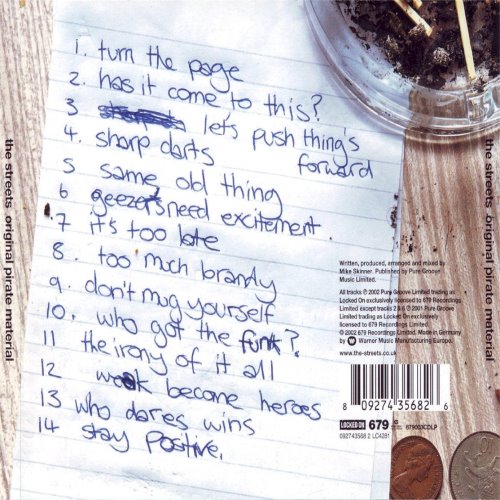 1. turn the page
2. has it come to this?
3 let's push thing's
forward
4. sharp darts
5 same old thing
6 geezers need excitement
7 it's too late
8. too much brandy
9. don't mug yourself
10. who got the funk?
11 the irony of it all
12 weak become heroes
13 who dares wins
14 stay positive.
the streets original pirate material
the streets original pirate material
Written, produced, arranged and mixed by
Mike Skinner. Published by Pure Groove
Music Limited.
All tracks ℗ 2002 Pure Groove Limited trading as
Locked On exclusively licensed to 679 Recordings
Limited except tracks 2 & 6 ℗ 2001 Pure Groove
Limited trading as Locked On exclusively
licensed to 679 Recordings Limited.
© 2002 679 Recordings Limited. Made in Germany
by Warner Music Manufacturing Europe.
www.the-streets.co.uk
8 09274 35682 6
LOCKED ON 679
679003CDLP
092743568 2 LC4281